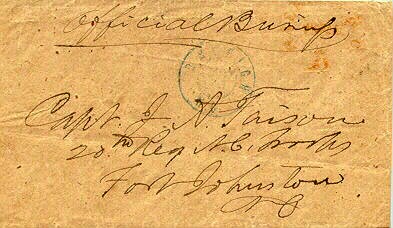 Official Business
RALEIGH
Capt. J. N. Faison
20th Reg N.C. Troops
Fort Johnston
N C